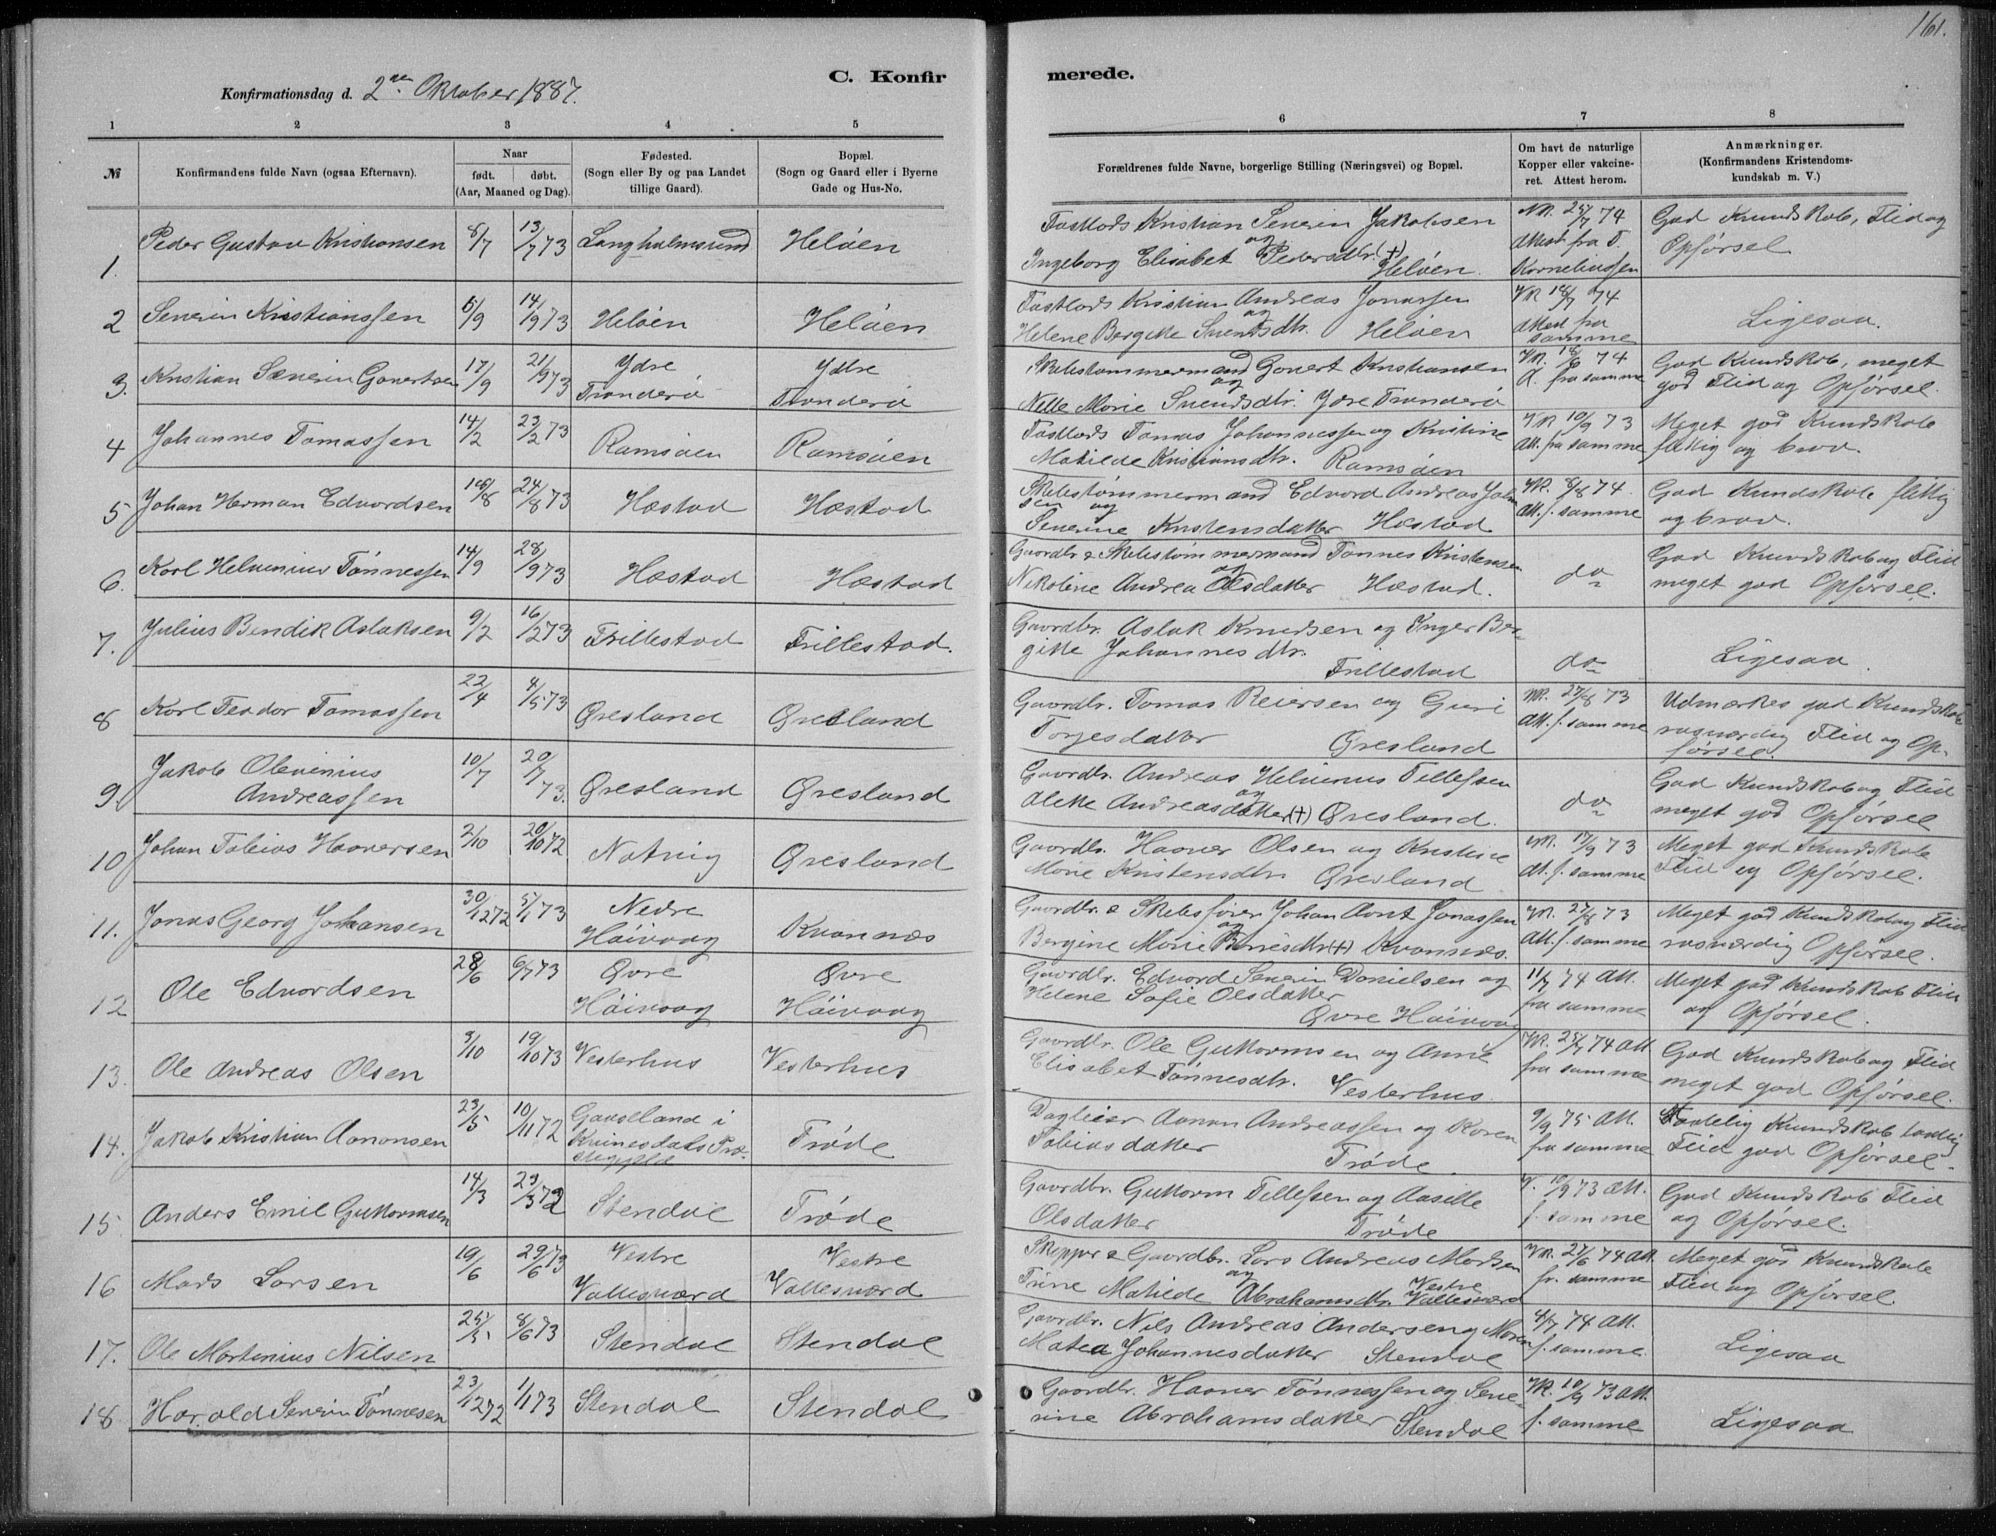 161.
C. Konfir
merede.
Konfirmationsdag d. 2den Oktober 1887.
1 2 3 4 5 6 7 8
№
Konfirmandens fulde Navn (ogsaa Efternavn).
Naar
født. døbt.
(Aar, Maaned og Dag).
Fødested.
(Sogn eller By og paa Landet
tillige Gaard).
Bopæl.
(Sogn og Gaard eller i Byerne
Gade og Hus-No.
Forældrenes fulde Navne, borgerlige Stilling (Næringsvei) og Bopæl.
Om havt de naturlige
Kopper eller vakcine-
ret. Attest herom.
Anmærkninger.
(Konfirmandens Kristendoms-
kundskab m. V.)
1. Peder Gustav Kristiansen 8/7 13/7 73 Langholmsund Heløen
Fastlods Kristian Severin Jakobsen
og
Ingeborg Elisabet Pedersdtr. (+) Heløen.
VR. 25/7 74
Attest fra T.
Korneliussen
God Kundskab, Flid og
Opførsel
2 Severin Kristianssen 5/9 14/9 73 Heløen Heløen
Fastlods Kristian Andreas Jonassen
og
Helene Bergitte Svendsdtr. Heløen
VR 18/7 74
Attest fra
samme
Ligesaa.
3. Kristian Severin Govertsen 17/9 21/9 73 Ydre
Tranderø
Ydre
Tranderø
Skibstømmermand Govert Kristiansen
og
Nille Marie Svendsdtr. Ydre Tranderø
VR. 18/6 74
A. fra samme
God Kundskab, meget
god Flid og Opførsel.
4 Johannes Tomassen 14/2 23/2 73 Ramsøen Ramsøen
Fastlods Tomas Johannessen og Kristine
Matilde Kristiansdtr. Ramsøen
VR 10/9 73
Att. fra samme
Meget god Kundskab
flittig og brav.
5 Johan Herman Edvardsen 16/8 24/8 73 Hæstad Hæstad
Skibstømmermand Edvard Andreas Johan
sen og
Severine Kristensdatter Hæstad
VR. 8/8 74.
Att. f. samme
God Kundskab flittig
og brav.
6. Karl Helvinius Tønnessen 14/9 28/9 73 Hæstad Hæstad
Gaardbr. & Skibstømmermand Tønnes Kristensen
og
Nikoline Andrea Olsdatter Hæstad.
do
God Kundskab og Flid
meget god Opførsel.
7. Julius Bendik Aslaksen 9/2 16/2 73 Trillestad Trillestad.
Gaardbr. Aslak Knudsen og Inger Ber-
gitte Johannesdtr.
Trillestad
do
Ligesaa.
8 Karl Teodor Tomassen 22/4 4/5 73 Øresland Øresland
Gaardbr. Tomas Reiersen og Guri
Torjesdatter Øresland
VR. 27/8 73
Att. f. samme
Udmærket god Kundskab
rosværdig Flid og Op-
førsel.
9. Jakob Olevinius
Andreassen
10/7 20/7 73. Øresland Øresland
Gaardbr. Andreas Helvinus Tellefsen
og
Alette Andreasdatter (+) Øresland.
do
God Kundskab og Flid
meget god Opførsel
10 Johan Tobias Haaversen 2/10 20/10 72 Natvig Øresland
Gaardbr. Haaver Olsen og Kristine
Marie Kristensdtr. Øresland
VR. 17/9 73
Att. f. samme
Meget god Kundskab
Flid og Opførsel.
11. Jonas Georg Johansen 30/12 72 5/1 73 Nedre
Høivaag
Kvannæs
Gaardbr. & Skibsfører Johan Arnt Jonassen
og
Bergine Marie Berntsdtr (+) Kvannæs.
VR. 27/8 73
Att. f. samme
Meget god Kundskab og Flid
rosværdig Opførsel.
12 Ole Edvardsen 28/6 6/7 73 Øvre
Høivaag
Øvre
Høivaag
Gaardbr. Edvard Severin Danielsen og
Helene Sofie Olsdatter
Øvre Høivaag
11/7 74 Att.
fra samme
Meget god Kundskab Flid
og Opførsel.
13. Ole Andreas Olsen 3/10 19/10 73 Vesterhus Vesterhus
Gaardbr. Ole Guttormsen og Anne
Elisabet Tønnesdtr. Vesterhus.
VR. 25/7 74 Att.
fra samme
God Kundskab og Flid
meget god Opførsel.
14. Jakob Kristian Aanonsen 23/5 10/11 72 Gauseland i
Kvinesdals Præ-
stegjeld
Trøde
Daglejer Aanon Andreassen og Karen
Tobiasdatter Trøde
9/9 75 Att.
fra samme
Taalelig Kundskab taalelig
Flid god Opførsel.
15 Anders Emil Guttormsen 14/3 29/3 72 Stendal Trøde
Gaardbr. Guttorm Tellefsen og Aasille
Olsdatter Trøde
V. 10/9 73 Att.
f. samme
God Kundskab Flid
og Opførsel.
16 Mads Larsen 19/6 29/6 73 Vestre
Vallesværd
Vestre
Vallesværd
Skipper & Gaardbr. Lars Andreas Madsen
og
Trine Matilde Abrahamsdtr. Vestre Vallesværd
VR. 27/6 74 Att.
fr. samme
Meget god Kundskab
Flid og Opførsel
17. Ole Martinius Nilsen 25/5 8/6 73 Stendal Stendal
Gaardbr. Nils Andreas Andersen og Maren
Matea Johannesdatter Stendal
4/7 74 Att.
f. samme.
Ligesaa
18 Harald Severin Tønnesen 23/12 72 1/1 73 Stendal Stendal
Gaardbr. Haaver Tønnessen og Seve-
rine Abrahamsdatter Stendal
VR. 10/9 73 Att.
f. samme
Ligesaa